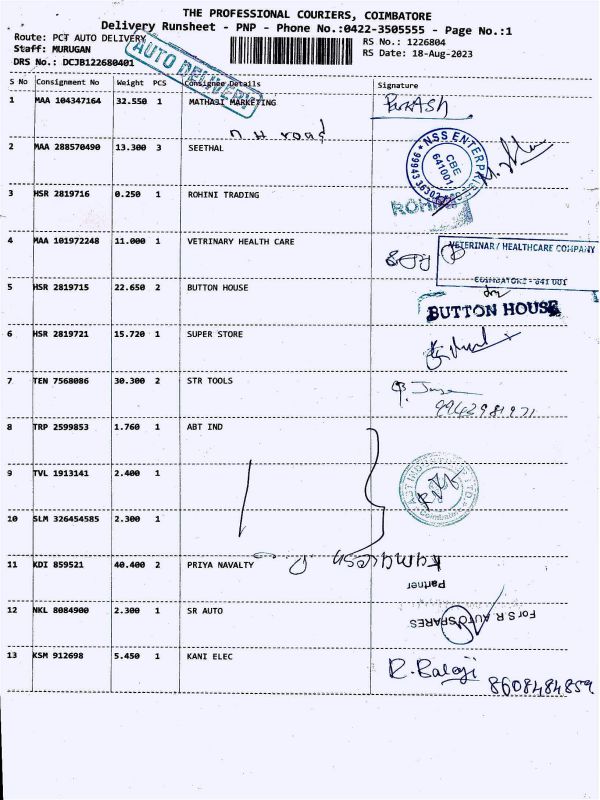 THE PROFESSIONAL COURIERS, COIMBATORE
Delivery Runsheet - PNP - Phone No.:0422-3505555 - Page No.:1
Route: PCT AUTO DELIVERY
RS No.: 1226804
Staff: MURUGAN
RS Date: 18-Aug-2023
DRS No.: DCJB122680401
AUTO DELIVERY
S No Consignment No Weight PCS Consignee Details Signature
1 MAA 104347164 32.550 1 MATHAJI MARKETING
n H road
2 MAA 288570490 13.300 3 SEETHAL
NSS ENTERPRI
CBE
641001
3 HSR 2819716 0.250 1 ROHINI TRADING
4 MAA 101972248 11.000 1 VETRINARY HEALTH CARE
VETERINAR/HEALTHCARE COMPANY
COIMBATORE - 641 001
5 HSR 2819715 22.650 2 BUTTON HOUSE
BUTTON HOUSE
6 HSR 2819721 15.720 1 SUPER STORE
7 TEN 7568086 30.300 2 STR TOOLS
9942981971
8 TRP 2599853 1.760 1 ABT IND
9 TVL 1913141 2.400 1
ABT INDUSTRIES LTD
Coimbatore
10 SLM 326454585 2.300 1
11 KDI 859521 40.400 2 PRIYA NAVALTY
Kumaresn
Partner
12 NKL 8084900 2.300 1 SR AUTO
For S.R AUTOSPARES
13 KSM 912698 5.450 1 KANI ELEC
R. Balaji
8608484859